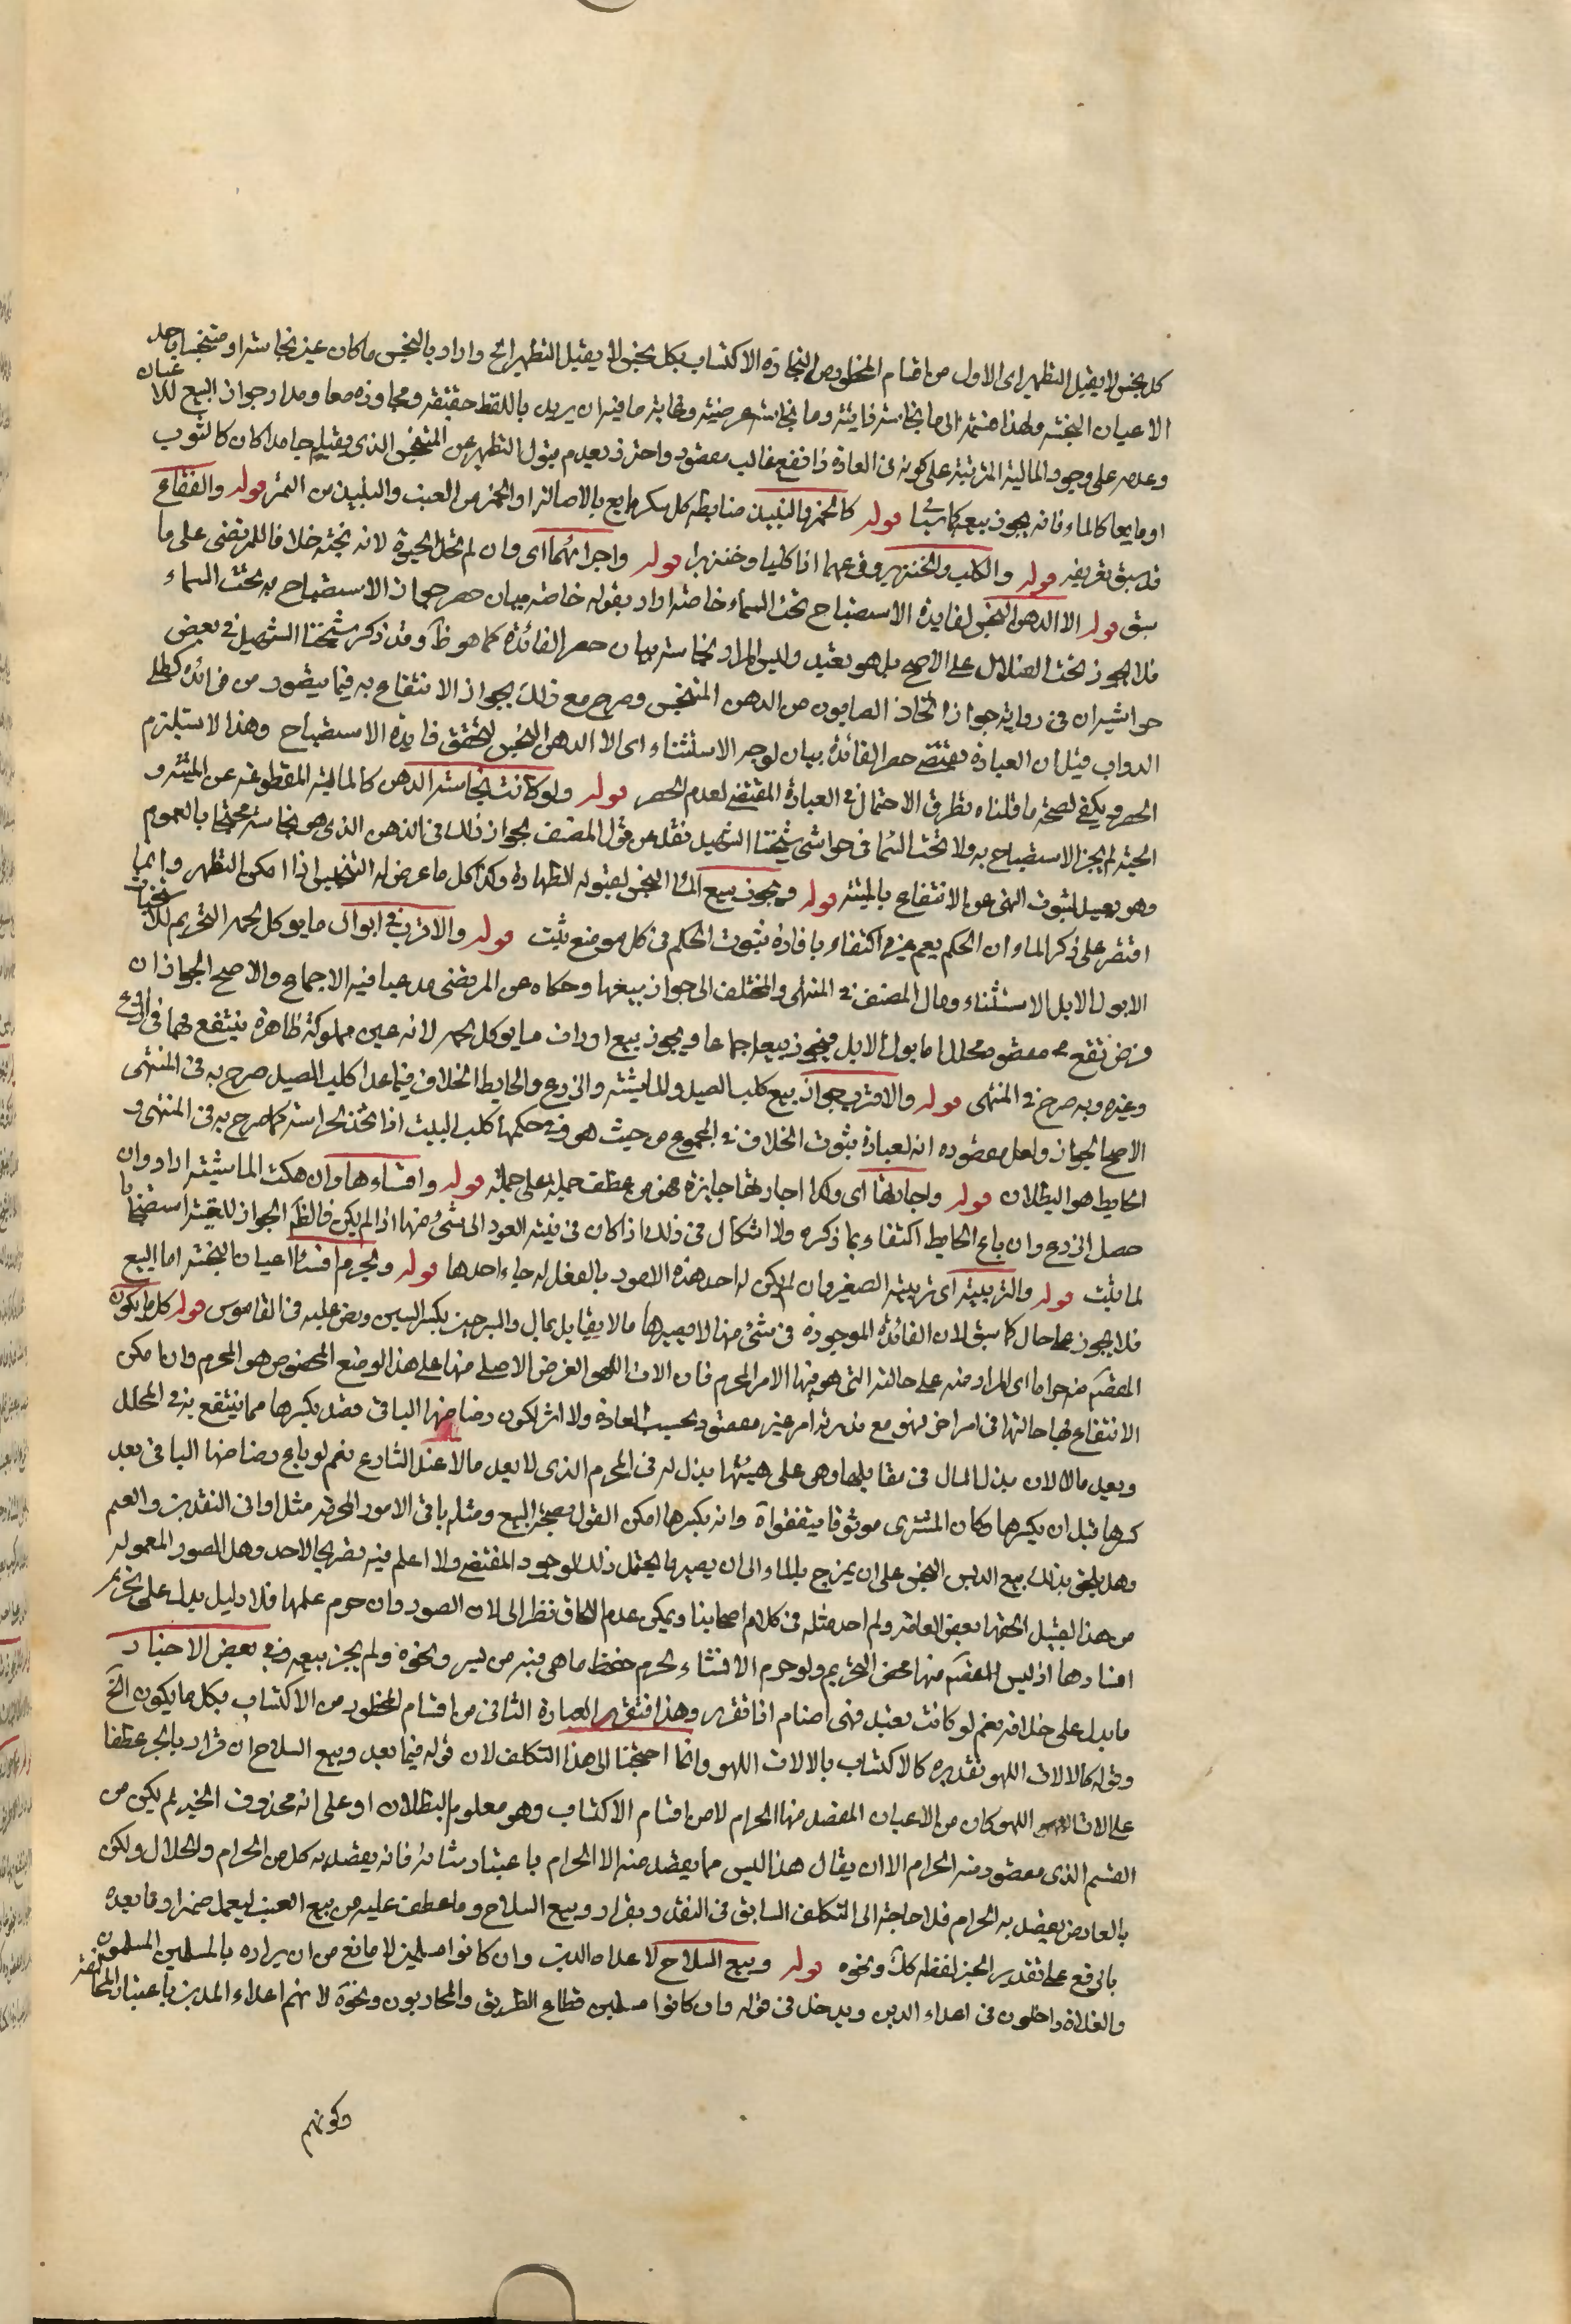 كل نجس لا يقبل التطهير اى الاول من اقسام المحظور من التجارة الاكتساب بكل نجس لا يقبل التطهير الخ واراد بالنجس ما كان عين نجاسة او متنجسا باحد
الاعيان النجسة ولهذا قسمه الى ما نجاسته ذاتية وما نجاسته عرضية وغاية ما فيه ان يريد باللفظ حقيقته ومجازه معا ومدار جواز البيع للاعيان
وعدمه على وجود المالية المترتبة على كونه فى العادة ذا نفع غالب مقصود واحترز بعدم قبول التطهير عن المتنجس الذى يقبله جامدا كان كالثوب
او مايعا كالماء فانه يجوز بيعه قوله كالخمر والنبيذ ضابطه كل مسكر مايع بالاصالة او الخمر من العنب والنبيذ من التمر قوله والفقاع
قد سبق تعريفه قوله والكلب والخنزير وفرعهما اذا كلبا وخنزيرا قوله واجزائهما اى وان لم تحلها الحيوة لانه نجسة خلافا للمرتضى على ما
سبق قوله الا الدهن النجس لفايدة الاستصباح تحت السماء خاصة اراد بقوله خاصة بيان حصر جواز الاستصباح به تحت السماء
فلا يجوز تحت الظلال على الاصح بل هو تعبد وليس المراد نجاسته بيان حصر الفائدة كما هو ظ وقد ذكر شيخنا الشهيد فى بعض
حواشيه ان فى رواية جواز اتخاذ الصابون من الدهن المتنجس وصرح مع ذلك بجواز الانتفاع به فيما يتصور من فوائده كطلى
الدواب قيل ان العبادة تقتضى حصر الفائدة بيان لوجه الاستثناء اى الا الدهن النجس لتحقق فايدة الاستصباح وهذا لا يستلزم
الحصر ويكفى لصحة ما قلناه تطرق الاحتمال فى العبارة المقتضى لعدم الحصر قوله ولو كانت نجاسة الدهن كالمالية المقطوعة من الميتة و
الحية لم يجز الاستصباح به ولا تحت السما فى حواشى شيخنا الشهيد نقل عن قول المصنف بجواز ذلك فى الدهن الذى هو نجاسته بالعموم
وهو بعيد لثبوت النهى عن الانتفاع بالميتة قوله ويجوز بيع الماء النجس لقبوله الطهارة وكذا كل ما عرض له التنجيس اذا امكن التطهر وانما
اقتصر على ذكر الماء وان الحكم يعم غيره اكتفاء بافادة ثبوت الحكم فى كل موضع يثبت قوله والاقرب فى ابوال ما يوكل لحمه التحريم للاستخباث
الا بول الابل الاستثناء ومال المصنف فى المنتهى والمختلف الى جواز بيعها وحكاه عن المرتضى مدعيا فيه الاجماع والاصح الجواز ان
فرض نفع مقصود محلل اما بول الابل فيجوز بيعه اجماعا ويجوز بيع ارواث ما يوكل لحمه لانه عين مملوكة طاهرة ينتفع بها فى الزرع
وغيره وبه صرح فى المنتهى قوله والاقرب جواز بيع كلب الصيد والماشية والزرع والحايط الخلاف فيما عدا كلب الصيد صرح به فى المنتهى
الاصح الجواز ولعل مقصوده انه لعبادة ثبوت الخلاف فى المجموع من حيث هو وفى حكمها كلب البيت اذا اتخذ لحراسته كما صرح به فى المنتهى و
الحايط هو البطلان قوله واجارتها اى وكذا اجارتها جايزة فهو من عطف جملة على جملة قوله واقتناءها وان هلكت الماشية اراد وان
حصل الزرع وان باع الحايط اكتفاء بما ذكره ولا اشكال فى ذلك اذا كان فى نيته العود الى شئ منها اذا لم يكن فالظ الجواز للقنية استصحابا
لما يثبت قوله والتربية اى تربية الصغير وان لم يكن له احد هذه الامور بالفعل لرجاء احدها قوله ويحرم اقتنا الاعيان النجسة اما البيع
فلا يجوز بحال كما سبق لان الفائدة الموجودة فى شئ منها لا يصيرها مالا يقابل بمال والسرجين بكسر السين ونص عليه فى القاموس قوله كل ما يكون
المقصد منه حراما اى المراد منه على حالته التى هو فيها الامر المحرم فان الات اللهو الغرض الاصلى منها على هذا الوضع المخصوص هو المحرم وان امكن
الانتفاع بها حالتها فى امر اخر فهو مع ندرته امر غير مقصود بحسب العادة ولا اثر لكون رضاضها الباقى بعد كسرها مما ينتفع به فى المحلل
وبعد مالا لان بذل المال فى مقابلها وهى على هيئتها بذل له فى المحرم الذى لا يعد مالا عند الشارع نعم لو باع رضاضها الباقى بعد
كسرها قبل ان يكسرها وكان المشترى موثوقا وانه يكسرها امكن القول بصحة البيع ومثله باقى الامور المحرمة مثل اوانى النقدين والصنم
وهل يلحق بذلك بيع الدبس النجس على ان يمزج بالماء الى ان يصير يحتمل ذلك لوجود المقتضى ولا اعلم فيه تصريحا لاحد وهل الصور المعمولة
من هذا القبيل الحقها بعض العامة ولم اجد مثله فى كلام اصحابنا ويمكن عدم الالحاق نظرا الى ان الصور وان حرم عملها فلا دليل يدل على تحريم
اقتنادها اذ ليس المقصد منها محض التحريم ولو حرم الاقتناء لحرم حفظ ما هى فيه من ستر ونحوه ولم يجز بيعه وفى بعض الاخبار
ما يدل على خلافه نعم لو كانت تعبد فهى اصنام اذا تقرر وهذا افتقر العبارة الثانى من اقسام المحظور من الاكتساب بكل ما يكون الخ
وقوله كالالات اللهو تقديره كالاكتساب بالالات اللهو وانما احتجنا الى هذا التكلف لان قوله فيما بعد وبيع السلاح ان قراد بالجر عطفا
على الات اللهو كان من الاعيان المقصد منها الحرام لا من اقسام الاكتساب وهو معلوم البطلان او على انه محذوف الخبر لم يكن من
القسم الذى مقصود منه الحرام الا ان يقال هذا ليس مما يقصد منه الا الحرام باعتبار شانه فانه يقصد به كل من الحرام والحلال ولكن
بالعارض يقصد به الحرام فلا حاجة الى التكلف السابق فى النقد ويقراد وبيع السلاح وما عطف عليه من بيع العنب ليعمل خمرا وما بعده
بالرفع على تقدير الخبر لفظه كك ونحوه قوله وبيع السلاح لاعداء الدين وان كانوا مسلمين لا مانع من ان يراد بالمسلمين المسلمون
والغلاة داخلون فى اعداء الدين ويدخل فى قوله وان كانوا مسلمين قطاع الطريق والمحاربون ونحوه لانهم اعداء الدين باعتبار المخالفة
وكونهم